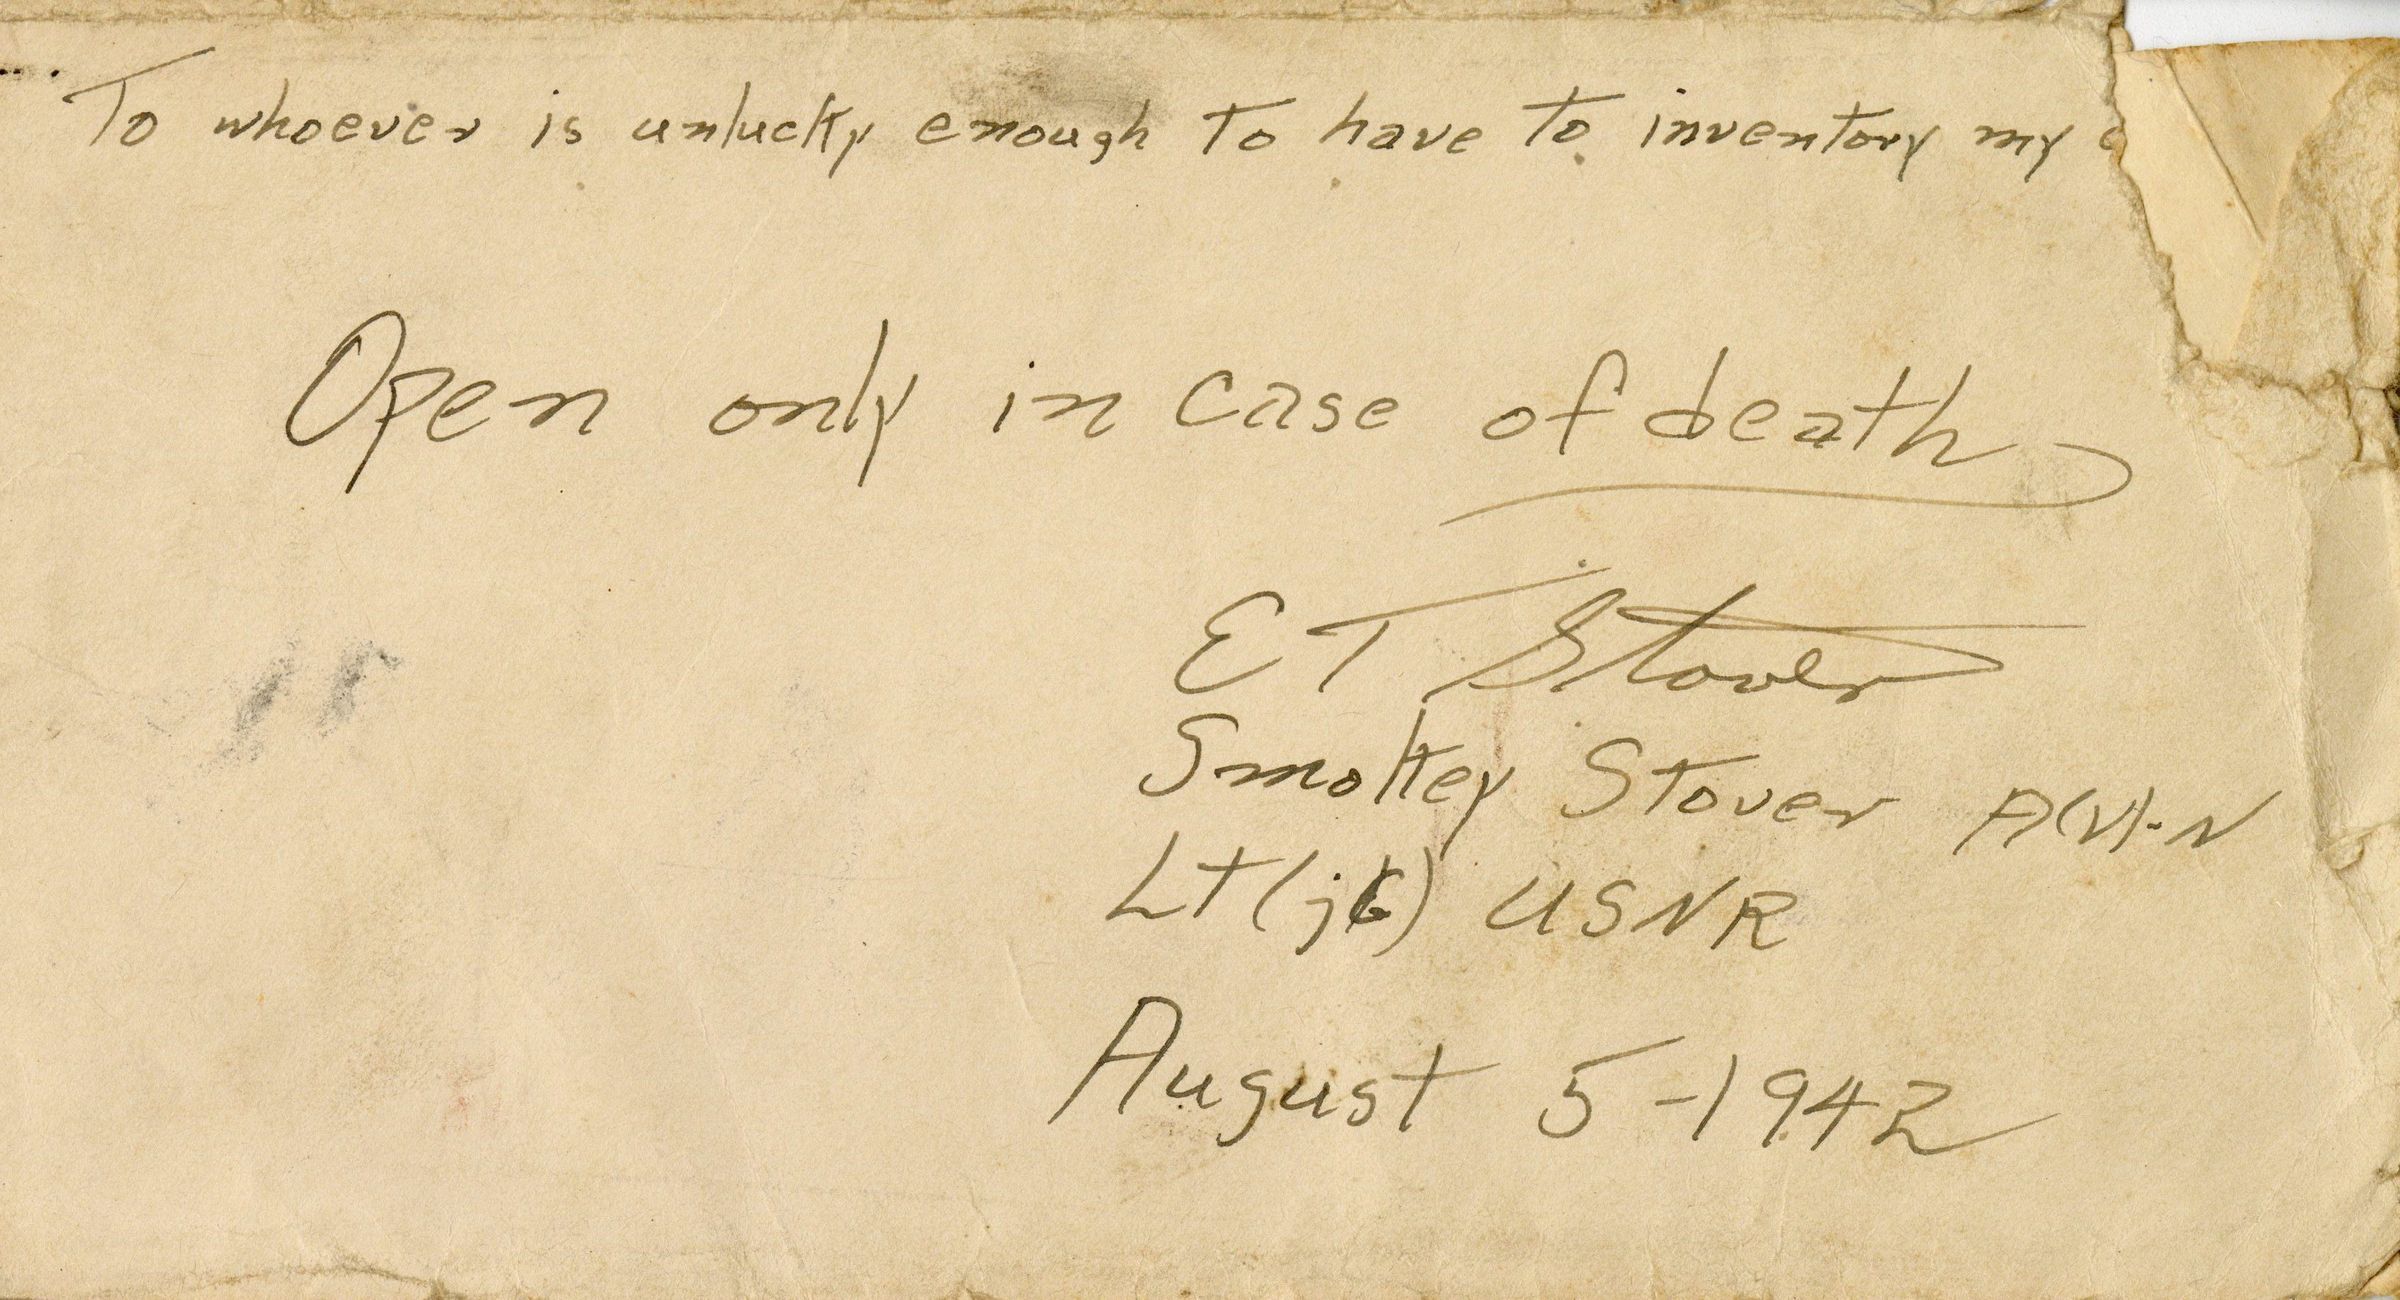 To whoever is unlucky enough to have to inventory my
Open only in case of death
E T Stover
Smokey Stover A(V)-N
Lt (jG) USNR
August 5-1942